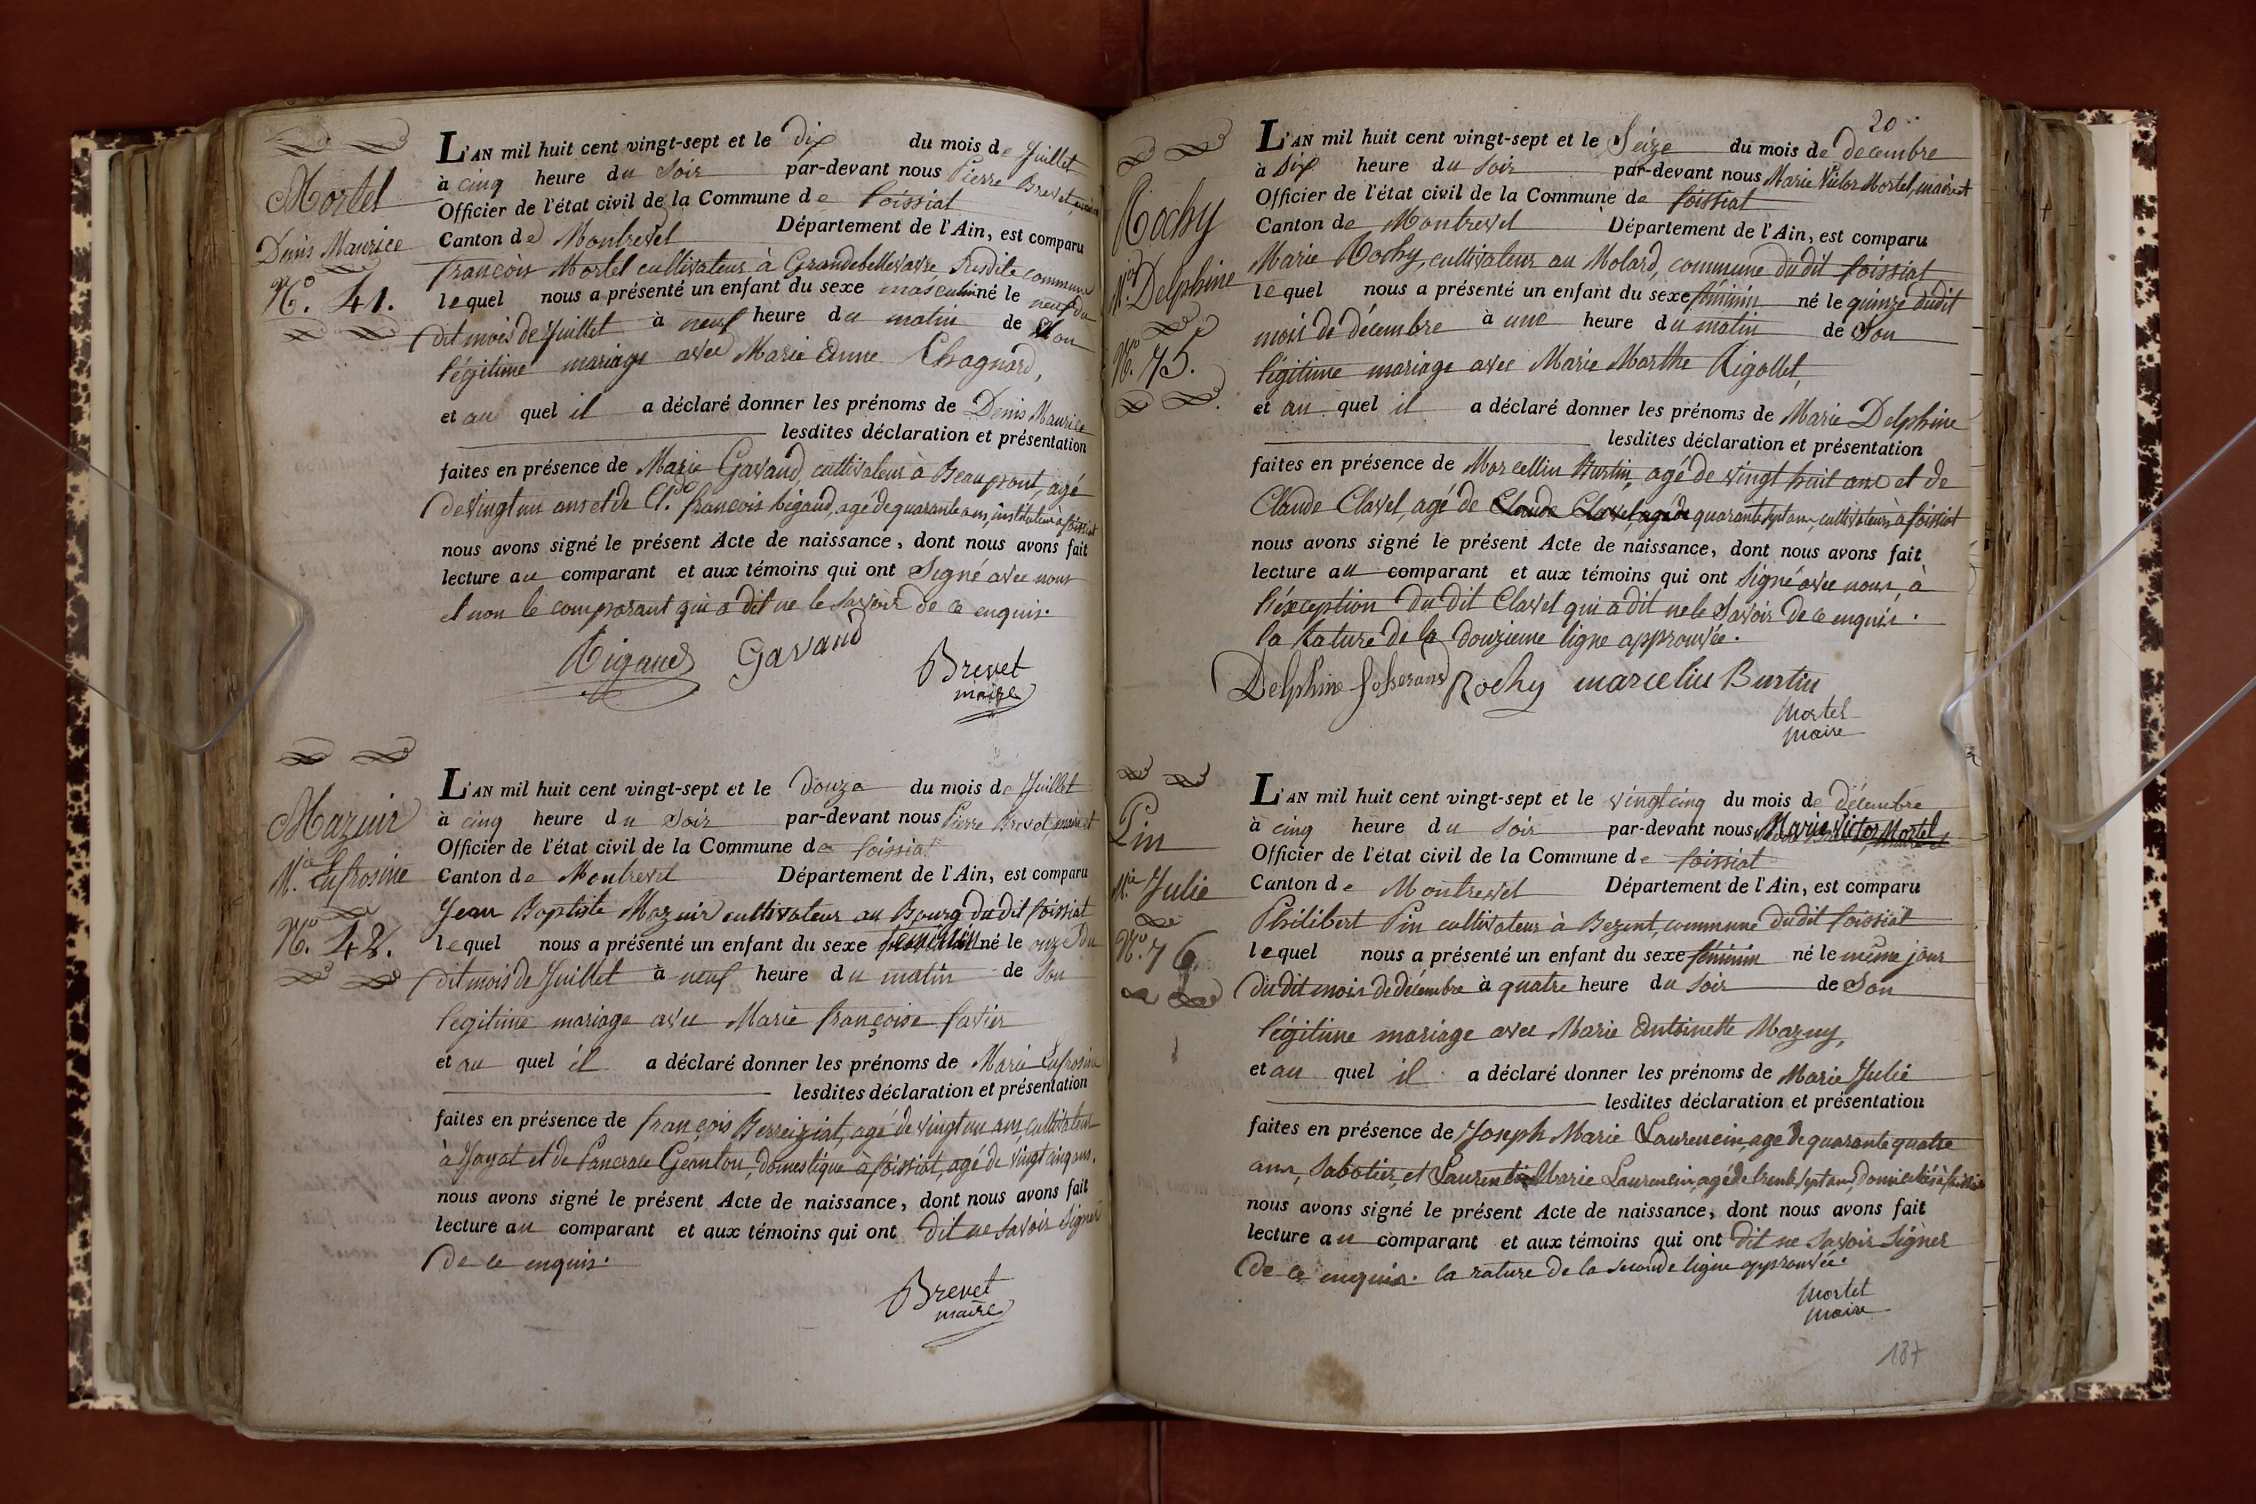 Mortel
Denis Maurice
N.o 41.
L'AN mil huit cent vingt-sept et le dix du mois de Juillet
à cinq heure du Soir par-devant nous Pierre Brevet,
Officier de l'état civil de la Commune de foissiat
Canton de Montrevel Département de l'Ain, est comparu
françois Mortel cultivateur à Grandebellevavre Susdite commune
lequel nous a présenté un enfant du sexe masculin né le neuf du
dit mois de Juillet à neuf heure du matin de Son
légitime mariage avec Marie Anne Chagnard,
et au quel il a déclaré donner les prénoms de Denis Maurice
lesdites déclaration et présentation
faites en présence de Marie Gavand, cultivateur à Beaupont, agé
de vingt un ans et de Cl.de françois Rigaud, agé de quarante ans, instituteur à foissiat
nous avons signé le présent Acte de naissance, dont nous avons fait
lecture au comparant et aux témoins qui ont Signé avec nous
et non le comparant qui a dit ne le Savoir de ce enquis.
Rigaud Gavand Brevet
maire
Mazuir
M.ie Eufrosine
N.o 42.
L'AN mil huit cent vingt-sept et le douze du mois de Juillet
à cinq heure du Soir par-devant nous Pierre Brevet, maire et
Officier de l'état civil de la Commune de foissiat
Canton de Montrevel Département de l'Ain, est comparu
Jean Baptiste Mazuir cultivateur au Bourg du dit foissiat
lequel nous a présenté un enfant du sexe féminin né le onze du
dit mois de Juillet à neuf heure du matin de Son
légitime mariage avec Marie françoise favier
et au quel il a déclaré donner les prénoms de Marie Eufrosine
lesdites déclaration et présentation
faites en présence de françois Berreiziat, agé de vingt un ans, cultivateur
à Jayat et de Pancrace Geanton, domestique à foissiat, agé de vingt cinq ans.
nous avons signé le présent Acte de naissance, dont nous avons fait
lecture au comparant et aux témoins qui ont dit ne Savoir Signer
de ce enquis.
Brevet
maire
20
Rochy
M.ie Delphine
N.o 75.
L'AN mil huit cent vingt-sept et le Seize du mois de decembre
à Six heure du Soir par-devant nous Marie Victor Mortel, maire et
Officier de l'état civil de la Commune de foissiat
Canton de Montrevel Département de l'Ain, est comparu
Marie Rochy, cultivateur au Molard, commune du dit foissiat
lequel nous a présenté un enfant du sexe féminin né le quinze dudit
mois de décembre à une heure du matin de Son
légitime mariage avec Marie Marthe Rigollet,
et au quel il a déclaré donner les prénoms de Marie Delphine
lesdites déclaration et présentation
faites en présence de Marcellin Burtin, agé de vingt huit ans et de
Claude Clavel, agé de Claude Clavel, agé de quarante sept ans, cultivateurs à foissiat
nous avons signé le présent Acte de naissance, dont nous avons fait
lecture au comparant et aux témoins qui ont Signé avec nous, à
l'éxception du dit Clavel qui a dit ne le Savoir de ce enquis.
la Rature de la douzieme ligne approuvée.
Delphine Rochy marcelin Burtin
Mortel
Maire
Pin
M.ie Julie
N.o 76.
L'AN mil huit cent vingt-sept et le vingt cinq du mois de décembre
à cinq heure du Soir par-devant nous Marie Victor Mortel, Maire et
Officier de l'état civil de la Commune de foissiat
Canton de Montrevel Département de l'Ain, est comparu
Philibert Pin cultivateur à Bezent, commune du dit foissiat
lequel nous a présenté un enfant du sexe féminin né le même jour
du dit mois de décembre à quatre heure du Soir de Son
légitime mariage avec Marie Antoinette Mazuy,
et au quel il a déclaré donner les prénoms de Marie Julie
lesdites déclaration et présentation
faites en présence de Joseph Marie Laurencin, age de quarante quatre
ans, Sabotier, et Laurent Marie Laurencin, agé de trente Sept ans, domiciliés à foissiat
nous avons signé le présent Acte de naissance, dont nous avons fait
lecture au comparant et aux témoins qui ont dit ne Savoir Signer
de ce enquis. la rature de la Seconde ligne approuvée.
Mortel
Maire
187